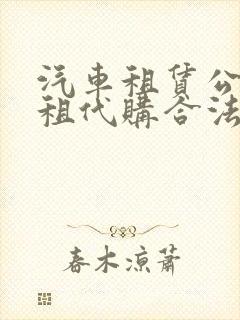 汽車租賃公
租代購合法
春木涼蕭